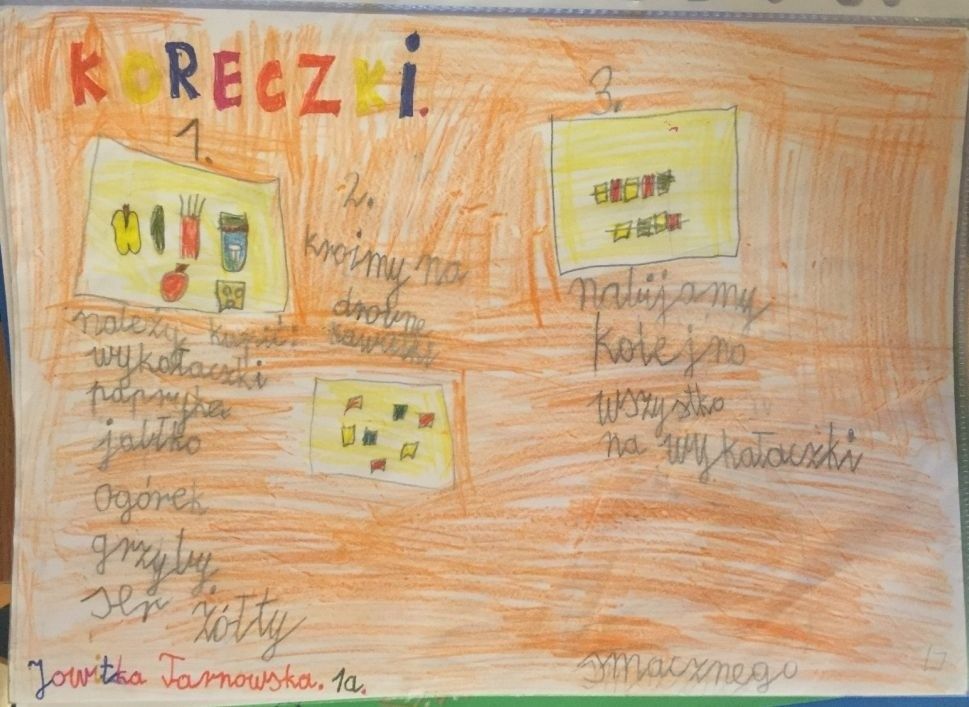 KORECZKI.
1.
należy kupić:
wykałaczki
paprykę
jabłko
ogórek
grzyby
ser żółty
2.
kroimy na
drobne
kawałki
3.
nabijamy
kolejno
wszystko
na wykałaczki
smacznego
Jowitka Tarnowska. 1a.